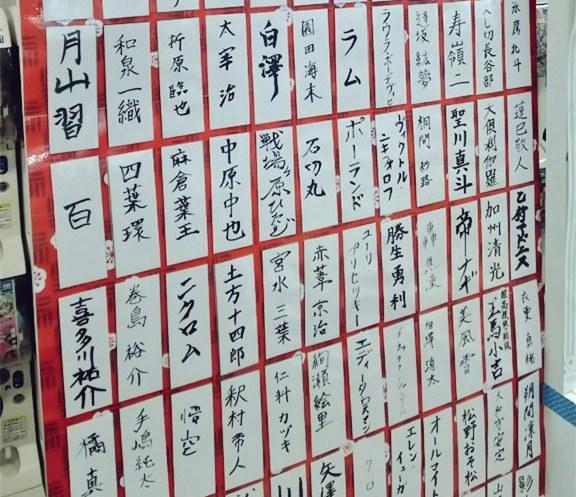 氷鷹北斗
へし切長谷部
寿嶺二
逢坂紘夢
ラウラ・ボーデヴィッヒ
ラム
園田海未
白澤
太宰治
折原臨也
和泉一織
月山習
蓮巳敬人
大倶利伽羅
聖川真斗
桐間紗路
ヴィクトル・ニキフォロフ
ポーランド
石切丸
戦場ヶ原ひたぎ
中原中也
麻倉葉王
四葉環
百
乙狩アドニス
加州清光
帝ナギ
轟焦凍
勝生勇利
ユーリ・プリセツキー
赤葦京治
宮水三葉
土方十四郎
ニクロム
巻島裕介
喜多川祐介
衣更真緒
王馬小吉
美風
消太
エディータ・ロスマン
絢瀬絵里
仁科カヅキ
釈村帝人
悟空
手嶋純太
橘真
朔間凛月
大和守安定
松野おそ松
オールマイト
エレン・イェーガ
クロ
矢澤
川
影
山